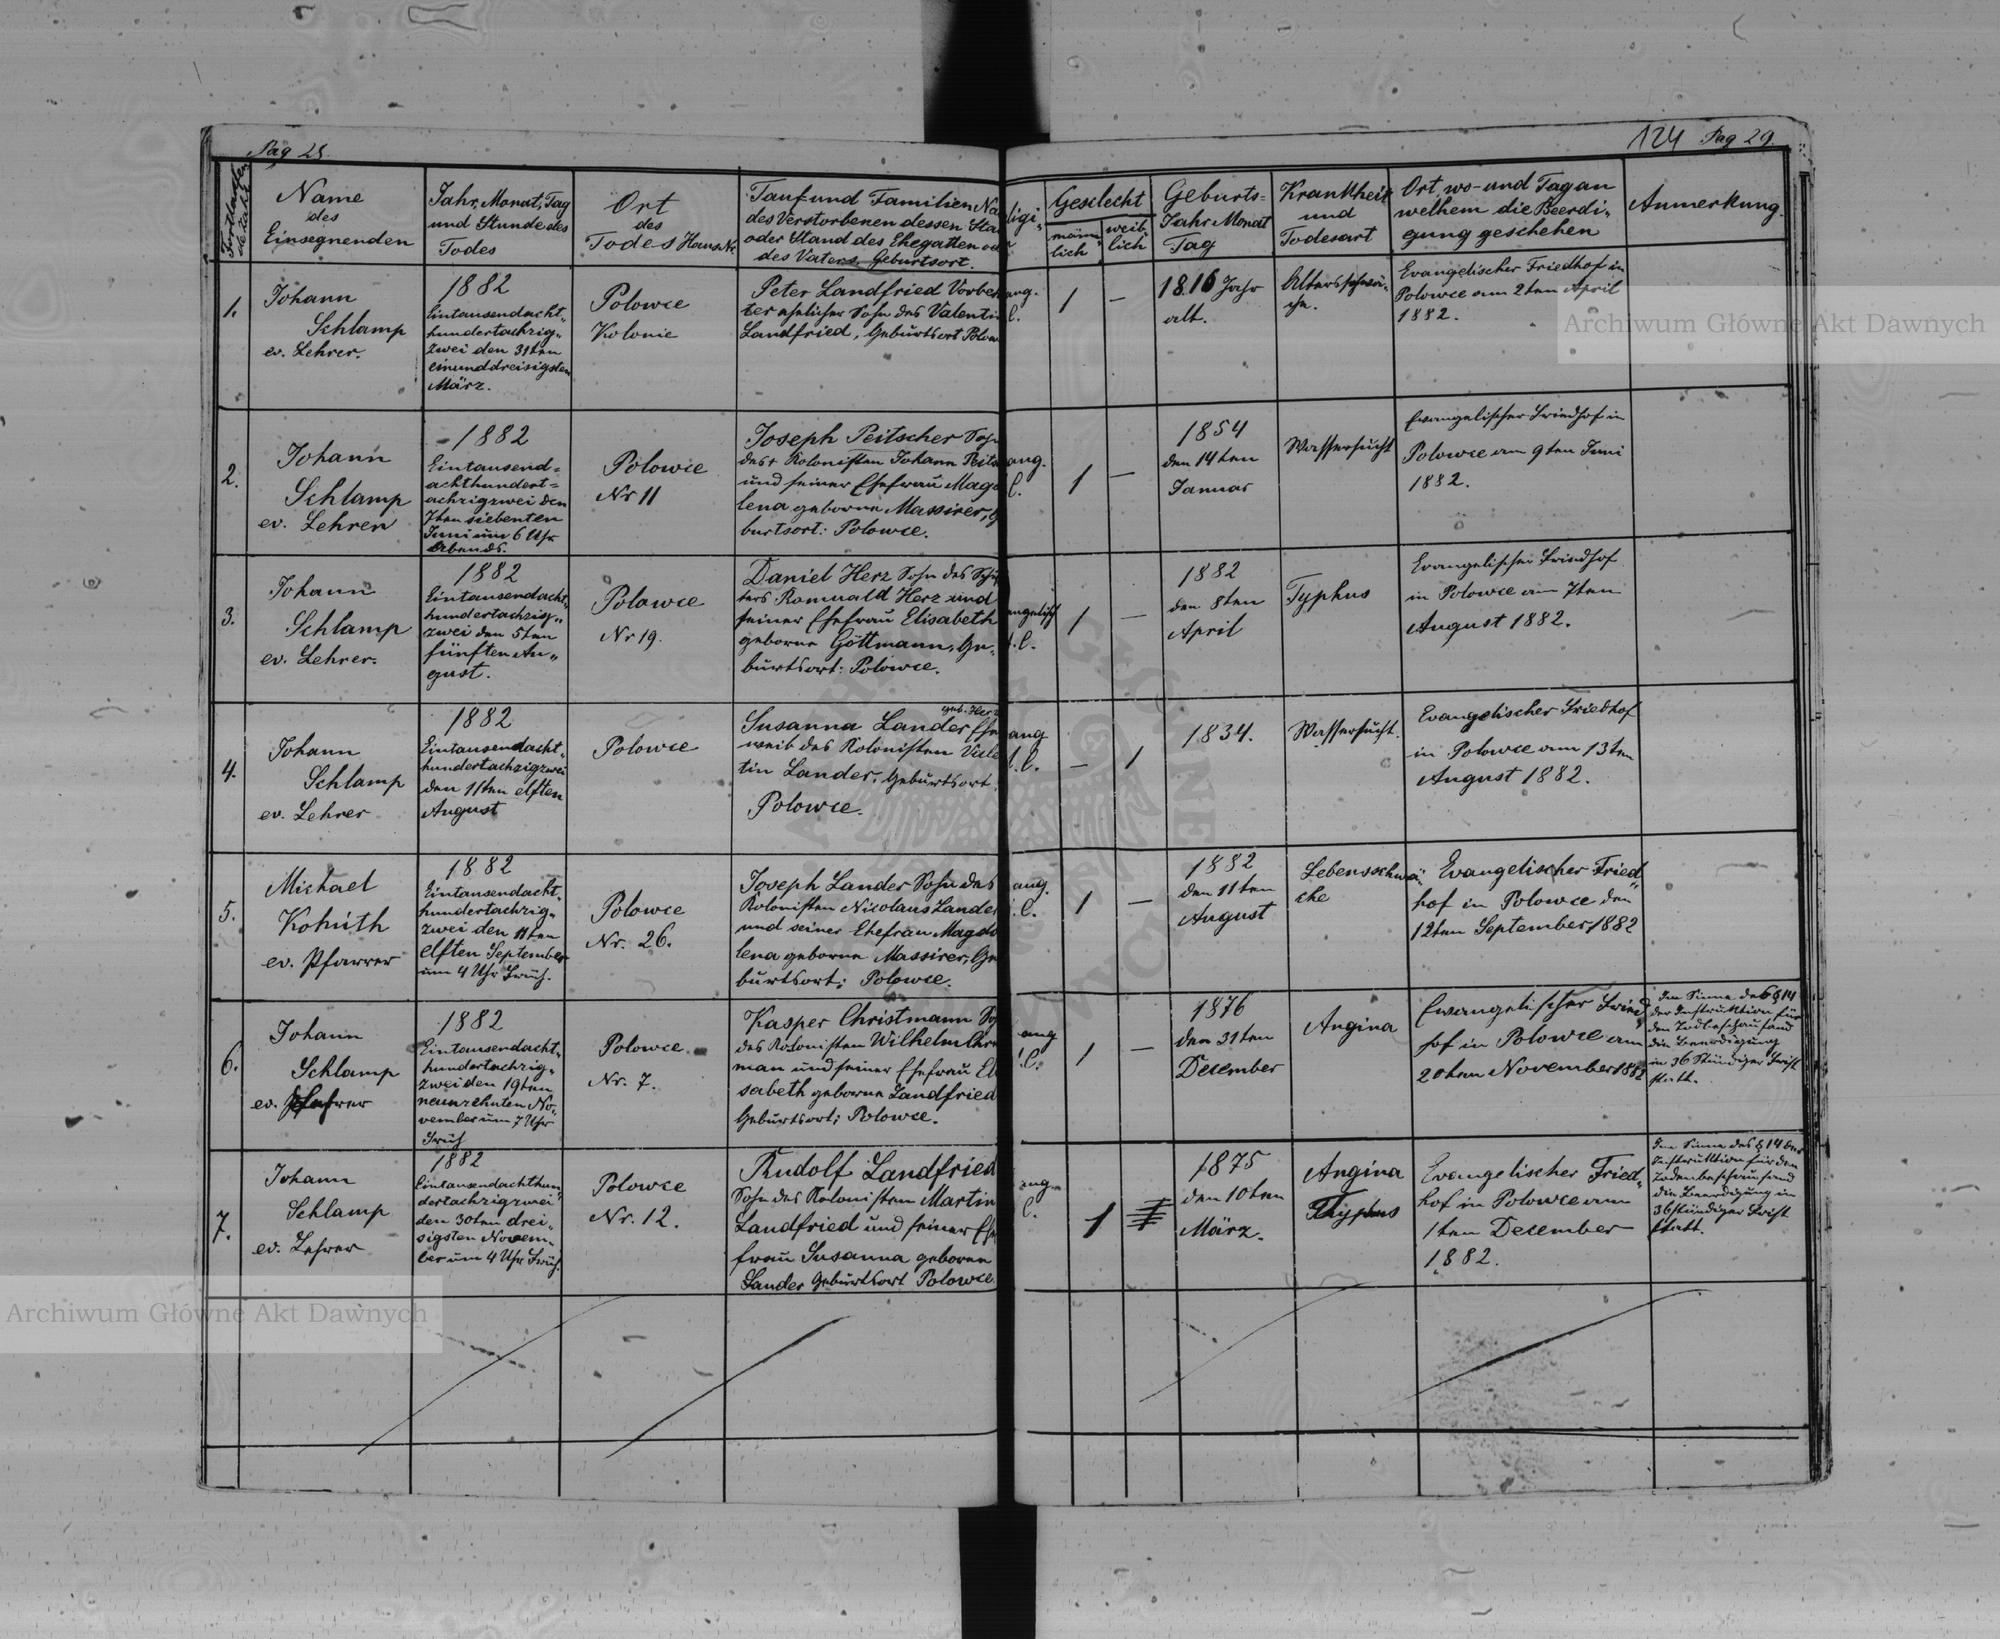 Pag 28.
Fortlaufende Zahl
Name
des
Einsegnenden
Jahr, Monat, Tag
und Stunde des
Todes
Ort
des
Todes Haus Nr.
Tauf und Familien Na
des Verstorbenen dessen Sta
oder Stand des Ehegatten od
des Vaters. Geburtsort.
1.
Johann
Schlamp
ev. Lehrer.
1882
Eintausendacht„
hundertachzig„
zwei den 31ten
einunddreisigsten
März.
Polowce
Kolonie
Peter Landfried Vorbe
ter ehelicher Sohn des Valenti
Landfried, Geburtsort Polow
2.
Johann
Schlamp
ev. Lehrer
1882
Eintausend=
achthundert=
achzigzwei den
7ten siebenten
Juni um 6 Uhr
Abends.
Polowce
Nr 11
Joseph Peitscher Soh
des + Kolonisten Johann Peits
und seiner Ehefrau Magd
lena geborne Massirer, G
burtsort: Polowce.
3.
Johann
Schlamp
ev. Lehrer.
1882
Eintausendacht„
hundertachzig„
zwei den 5ten
fünften Au„
gust.
Polowce
Nr 19.
Daniel Herz Sohn des Schu
ters Romuald Herz und
seiner Ehefrau Elisabeth
geborne Göttmann, Ge„
burtsort: Polowce.
4.
Johann
Schlamp
ev. Lehrer
1882
Eintausendacht„
hundertachzigzwei
den 11ten elften
August
Polowce
geb. Herz
Susanna Lander Ehe
weib des Kolonisten Vale
tin Lander, Geburtsort
Polowce.
5.
Michael
Kohuth
ev. Pfarrer
1882
Eintausendacht„
hundertachzig„
zwei den 11ten
elften September
um 4 Uhr Früh.
Polowce
Nr. 26.
Joseph Lander Sohn des
Kolonisten Nicolaus Lander
und seiner Ehefrau Magda
lena geborne Massirer, Ge
burtsort: Polowce.
6.
Johann
Schlamp
ev.
1882
Eintausendacht„
hundertachzig„
zwei den 19ten
neunzehnten No„
vember um 7 Uhr
Früh
Polowce.
Nr. 7.
Kasper Christmann So
des Kolonisten Wilhelm Chri
man und seiner Ehefrau El
sabeth geborne Landfried
Geburtsort: Polowce.
7.
Johann
Schlamp
ev. Lehrer
1882
Eintausendachthun
dertachzigzwei
den 30ten drei„
sigsten Novem„
ber um 4 Uhr Früh.
Polowce
Nr. 12.
Rudolf Landfried
Sohn des Kolonisten Martin
Landfried und seiner Ehe
frau Susanna geborne
Lander Geburtsort Polowce
124 Pag 29
ligi„
Geschlecht
männ„
lich
weib„
lich
Geburts=
Jahr Monat
Tag
Krankheit
und
Todesart
Ort, wo- und Tag an
welhem die Beerdi„
gung geschehen
Anmerkung.
ang.
C.
1
—
1816 Jahr
alt.
Altersschwä„
che.
Evangelischer Friedhof in
Polowce am 2ten April
1882.
ang.
C.
1
—
1854
den 14ten
Januar
Wassersucht
Evangelischer Friedhof in
Polowce am 9ten Juni
1882.
angelisch
C.
1
—
1882
den 8ten
April
Typhus
Evangelischer Friedhof
in Polowce am 7ten
August 1882.
ang
C.
—
1
1834.
Wassersucht.
Evangelischer Friedhof
in Polowce am 13ten
August 1882.
ang.
C.
1
—
1882
den 11ten
August
Lebensschwä„
che
Evangelischer Fried„
hof in Polowce den
12ten September 1882
ang
C.
1
—
1876
den 31ten
December
Angina
Evangelischer Fried„
hof in Polowce am
20ten November 1882
Im Sinne des § 14
der Instruktion für
den Todtenschau fand
die Beerdigung
in 36 Stündiger Frist
statt.
ang
C.
1
1875
den 10ten
März.
Angina
Thyphus
Evangelischer Fried„
hof in Polowce am
1ten December
1882.
Im Sinne des § 14 der
Instruktion für den
Todenbeschau fand
die Beerdigung in
36 stündiger Frist
statt.
Archiwum Główne Akt Dawnych
Archiwum Główne Akt Dawnych